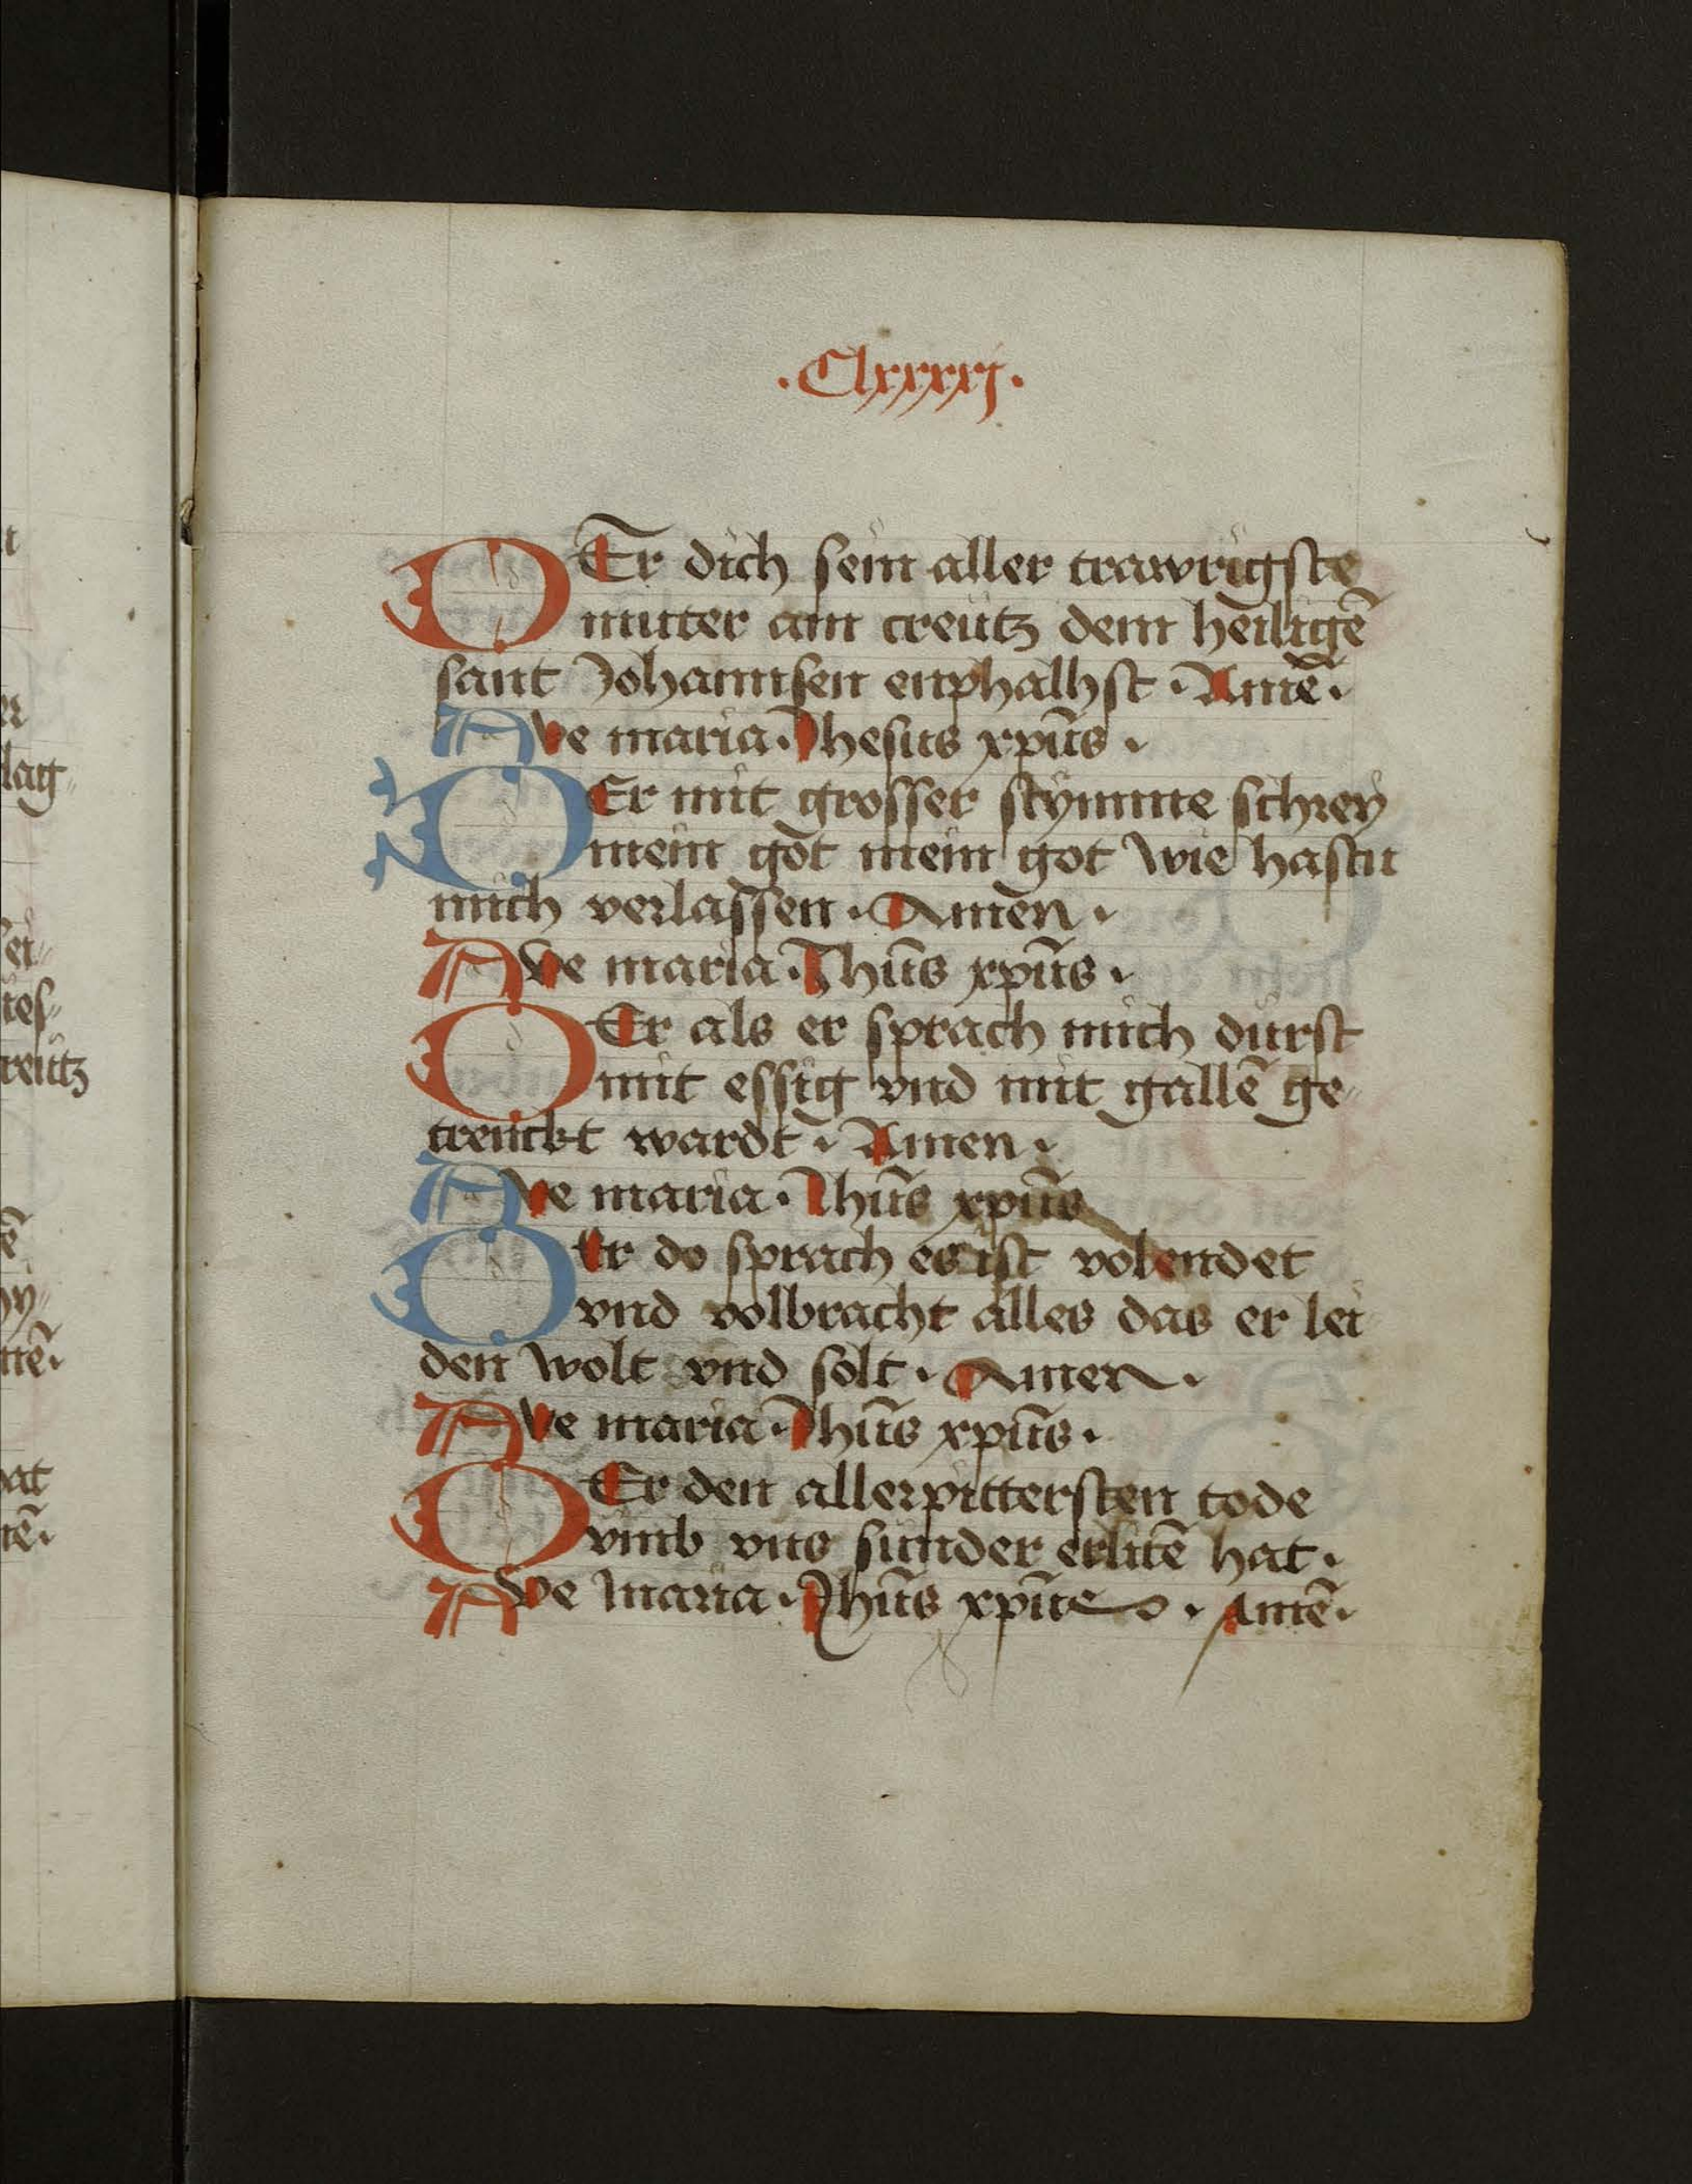 ·Clxxxxj·
DEr dich sein aller trawrigste
mutter am creutz dem heiligē
sant Johannsen enphalhst · Amē ·
Ave maria · Jhesus xpūs ·
DEr mit grosser stymme schrey
mein got mein got wie hastu
mich verlassen · Amen ·
Ave maria · Jhūs xpūs ·
DEr als er sprach mich dürst
mit essig vnd mit gallē ge-
trenckt wardt · Amen ·
Ave maria · Jhūs xpūs
DEr do sprach es ist volendet
vnd volbracht alles das er lei
den wolt vnd solt · Amen ·
Ave maria · Jhūs xpūs ·
DEr den allerpittersten tode
vmb vns sunder erlitē hat ·
Ave maria · Jhūs xpūs · Amē ·